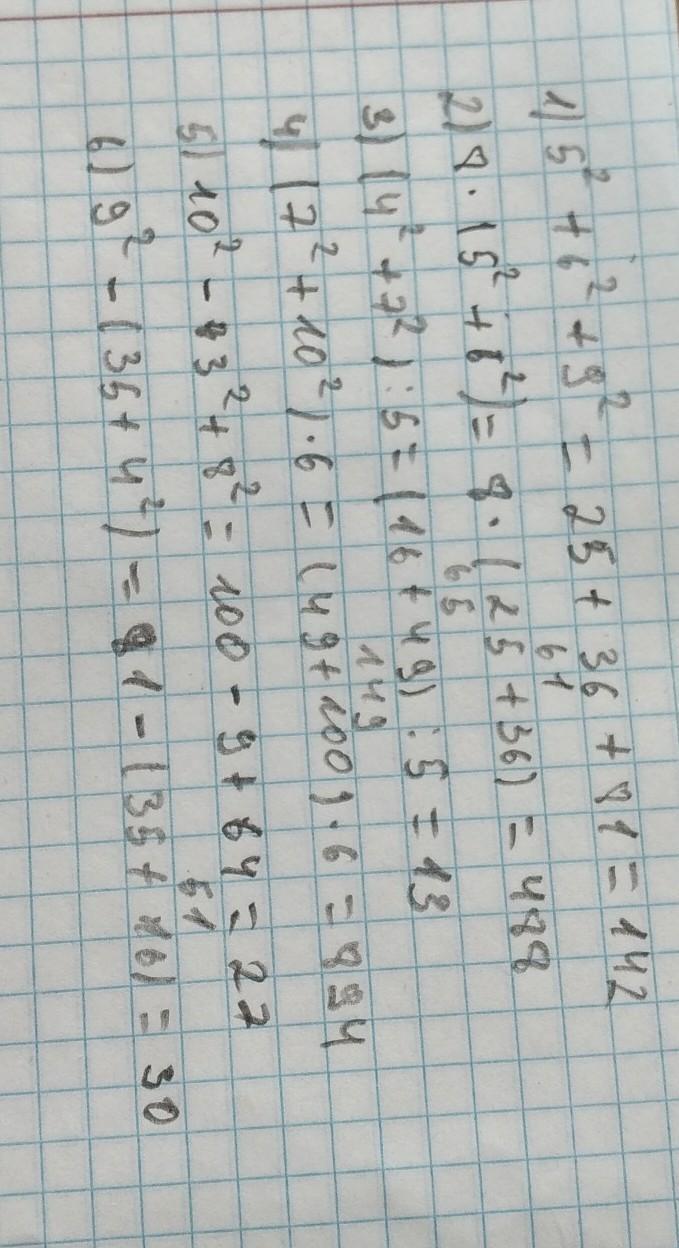 1) 5² + 6² + 9² = 25 + 36 + 81 = 142
61
2) 8 · (5² + 6²) = 8 · (25 + 36) = 488
65
3) (4² + 7²) : 5 = (16 + 49) : 5 = 13
149
4) (7² + 10²) · 6 = (49 + 100) · 6 = 894
5) 10² - 3² + 8² = 100 - 9 + 64 = 27
51
6) 9² - (35 + 4²) = 81 - (35 + 16) = 30